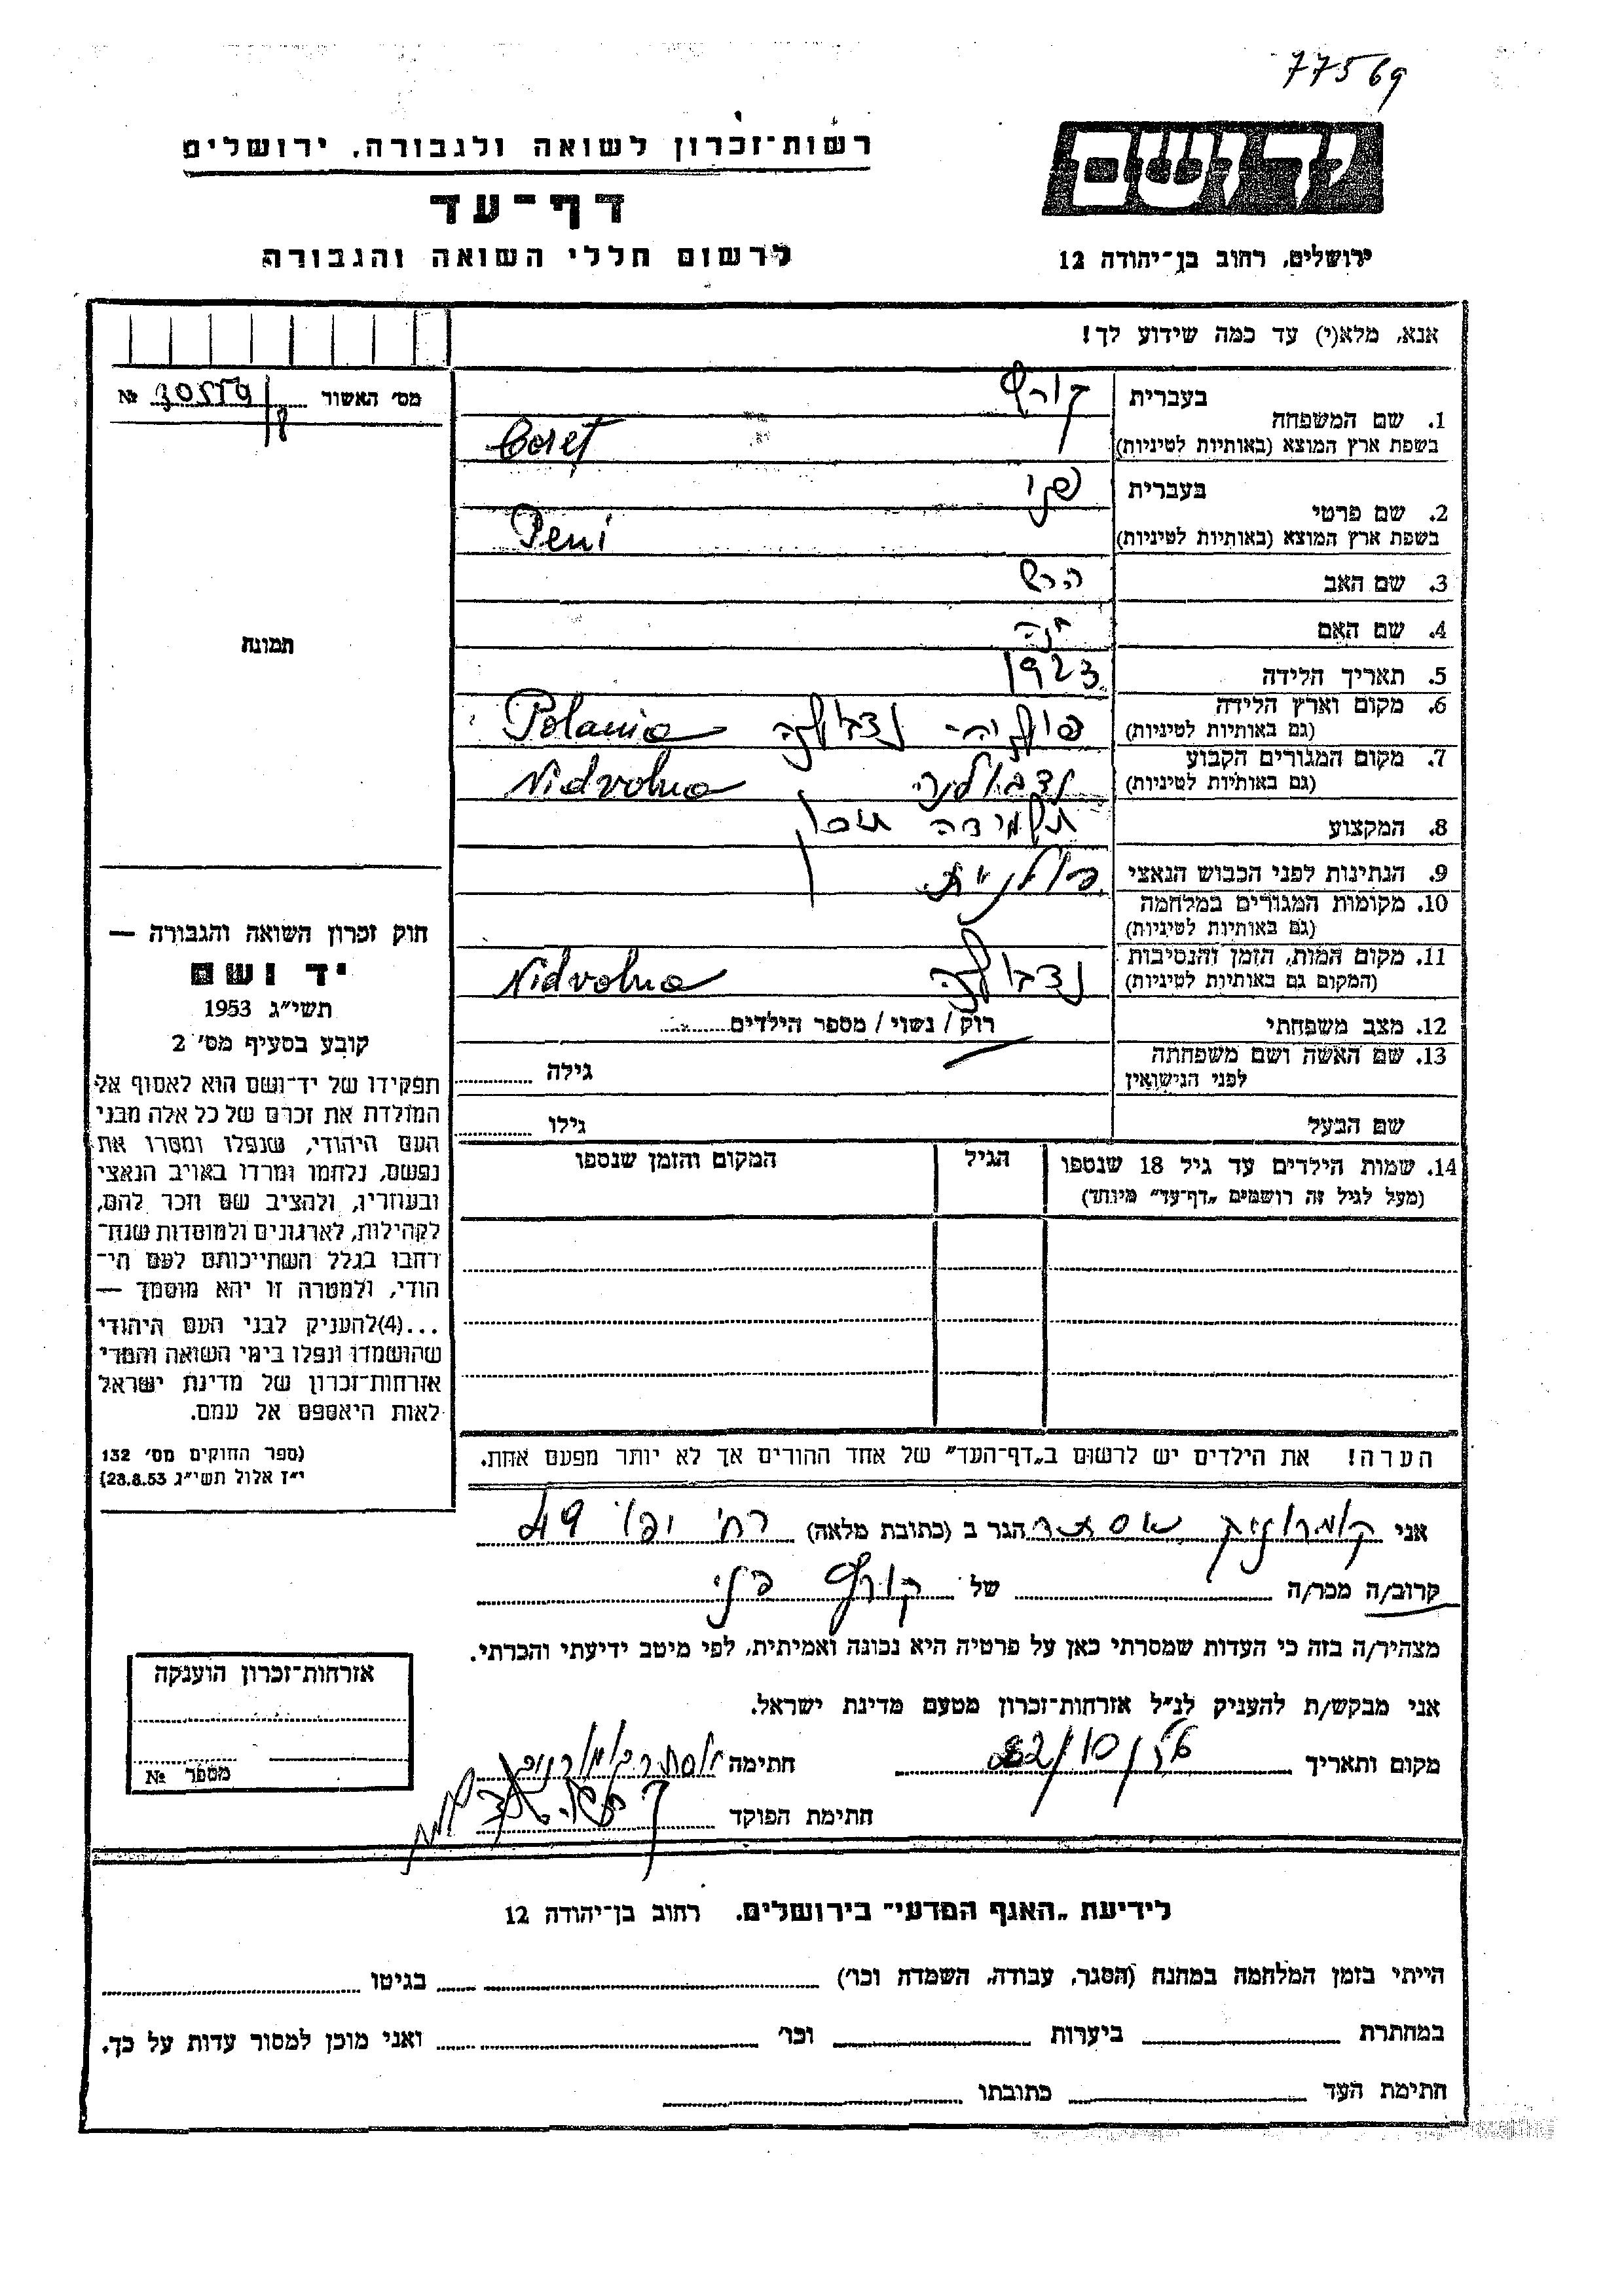 77569
רשות־זכרון לשואה ולגבורה, ירושלים
ידושם
דף־עד
לרשום חללי השואה והגבורה
ירושלים, רחוב בן־יהודה 12
אנא, מלא(י) עד כמה שידוע לך!
מס׳ האשור № 
1. שם המשפחה
בעברית
קורץ
בשפת ארץ המוצא (באותיות לטיניות)
Coreț
2. שם פרטי
בעברית
פני
בשפת ארץ המוצא (באותיות לטיניות)
Peni
3. שם האב
הרש
4. שם האם
חנה
5. תאריך הלידה 1923
6. מקום וארץ הלידה
(גם באותיות לטיניות)
פולניה- נדבולנה Polania
7. מקום המגורים הקבוע
(גם באותיות לטיניות)
נדבולנה Nidvolna
8. המקצוע
תלמידה תיכון
9. הנתינות לפני הכבוש הנאצי
פולנית
10. מקומות המגורים במלחמה
(גם באותיות לטיניות)
11. מקום המות, הזמן והנסיבות
(המקום גם באותיות לטיניות)
נדבולנה Nidvolna
12. מצב משפחתי
רוק / נשוי / מספר הילדים
13. שם האשה ושם משפחתה
לפני הנישואין
גילה
שם הבעל
גילו
14. שמות הילדים עד גיל 18 שנספו
(מעל לגיל זה רושמים „דף־עד״ מיוחד)
הגיל
המקום והזמן שנספו
תמונה
חוק זכרון השואה והגבורה —
יד ושם
תשי״ג 1953
קובע בסעיף מס׳ 2
תפקידו של יד־ושם הוא לאסוף אל
המולדת את זכרם של כל אלה מבני
העם היהודי, שנפלו ומסרו את
נפשם, נלחמו ומרדו באויב הנאצי
ובעוזריו, ולהציב שם וזכר להם,
לקהילות, לארגונים ולמוסדות שנח־
רחבו בגלל השתייכותם לעם הי־
הודי, ולמטרה זו יהא מוסמך —
...(4)להעניק לבני העם היהודי
שהושמדו ונפלו בימי השואה והמרי
אזרחות־זכרון של מדינת ישראל
לאות היאספם אל עמם.
(ספר החוקים מס׳ 132
י״ז אלול תשי״ג 28.8.53)
הערה! את הילדים יש לרשום ב„דף־העד״ של אחד ההורים אך לא יותר מפעם אחת.
אני אסתר הגר ב (כתובת מלאה) רח׳ יפו 49
קרוב/ה מכר/ה של קורץ פני
מצהיר/ה בזה כי העדות שמסרתי כאן על פרטיה היא נכונה ואמיתית, לפי מיטב ידיעתי והכרתי.
אני מבקש/ת להעניק לנ״ל אזרחות־זכרון מטעם מדינת ישראל.
מקום ותאריך חתימה
חתימת הפוקד
אזרחות־זכרון הוענקה
מספר №
לידיעת „האגף המדעי״ בירושלים. רחוב בן־יהודה 12
הייתי בזמן המלחמה במחנה (הסגר, עבודה, השמדה וכו׳) בגיטו
במחתרת ביערות וכו׳ ואני מוכן למסור עדות על כך.
חתימת העד כתובתו